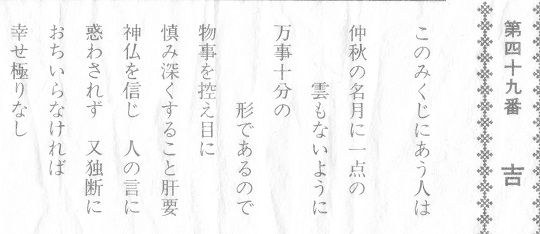 第四十九番 吉
このみくじにあう人は
仲秋の名月に一点の
雲もないように
万事十分の
形であるので
物事を控え目に
慎み深くすること肝要
神仏を信じ 人の言に
惑わされず 又独断に
おちいらなければ
幸せ極りなし